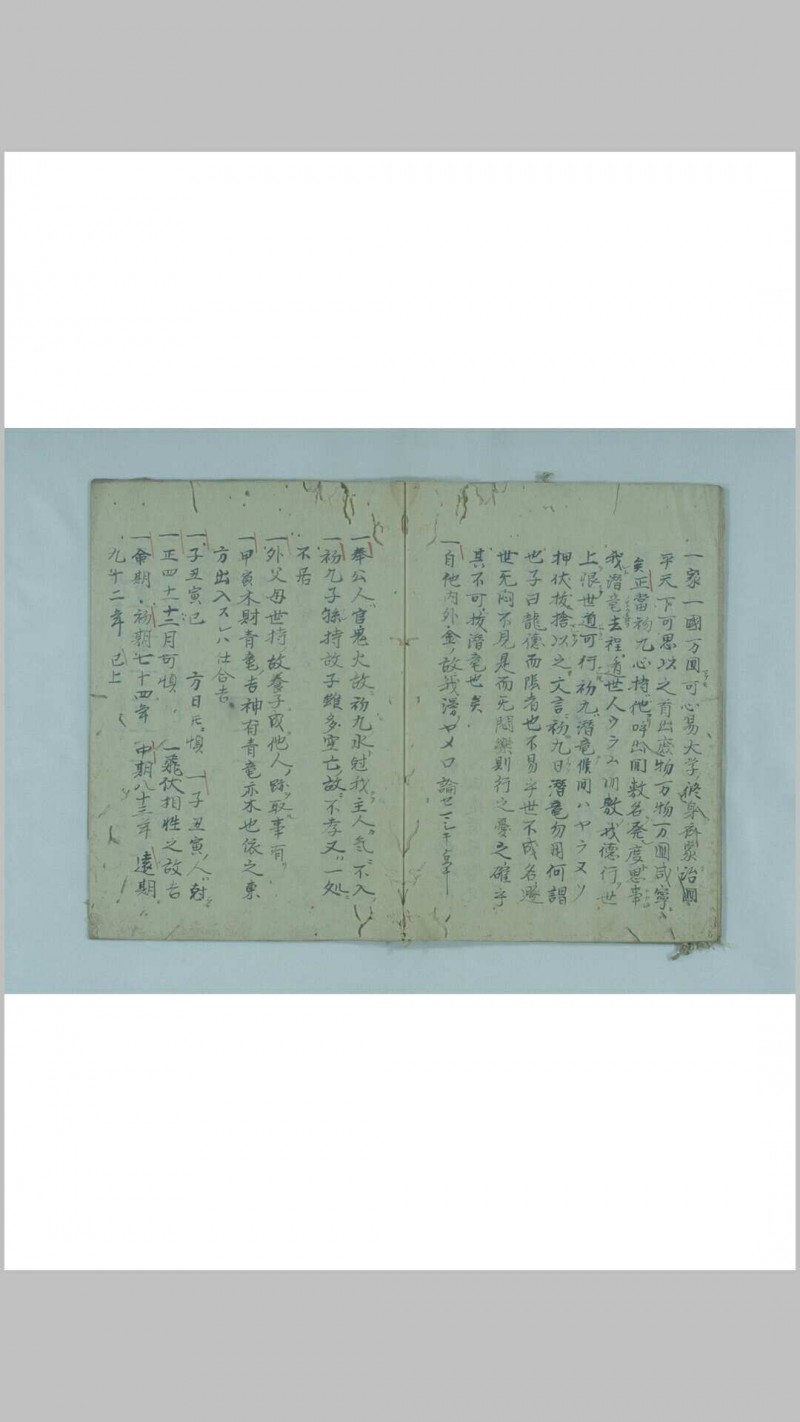 一家一國万国可心易大学修身斉家治國
平天下可思以之首出庶物万物一万國咸寧
矣正當初九心持他ノ呼出聞数名発度思事
我潜竜去程道世人ウラム聞数我德行世
上ノ恨世道可行初九ノ潜竜候間ハヤラヌソ
押伏抜捨以之文言初九曰潜竜勿用何謂
也子曰龍德而隠者也不易乎世不成名遯
世无悶不見是而无悶樂則行之憂之確乎
其不可抜潜竜也矣
一自他内外金ノ故我潜ヤメロ論セ
一奉公人官鬼火故初九水尅我主人ノ気ニ不入
一初九子孫持故子雖多空亡ノ故ニ不孝又一処ニ
不居
一外父母世持ノ故養子成他人ノ跡取事有リ
一甲寅木財青竜吉神有青竜亦木也依之東
方出入スレハ仕合吉
一子丑寅巳 方日 慎 一子丑寅ノ人尅
一正四十一十二月可慎 一飛伏相性之故吉
一命期初期七十四年 中期八十三年 遠期
九十二年 已上